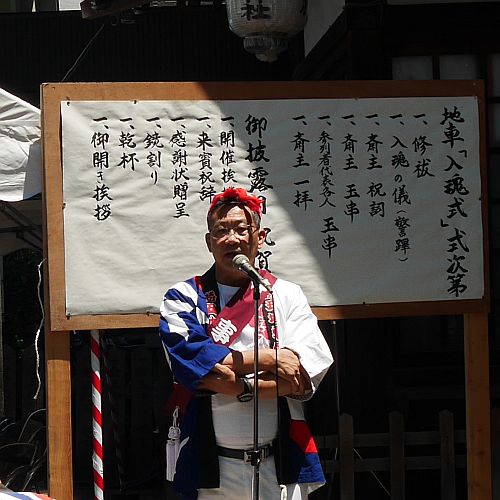 地車「入魂式」式次第
一、修祓
一、入魂の儀(警蹕)
一、斎主 祝詞
一、斎主 玉串
一、参列者代表各人 玉串
一、斎主 一拝
御披露目 祝賀
一、開催挨拶
一、来賓祝辞
一、感謝状贈呈
一、鏡割り
一、乾杯
一、御開き挨拶
社